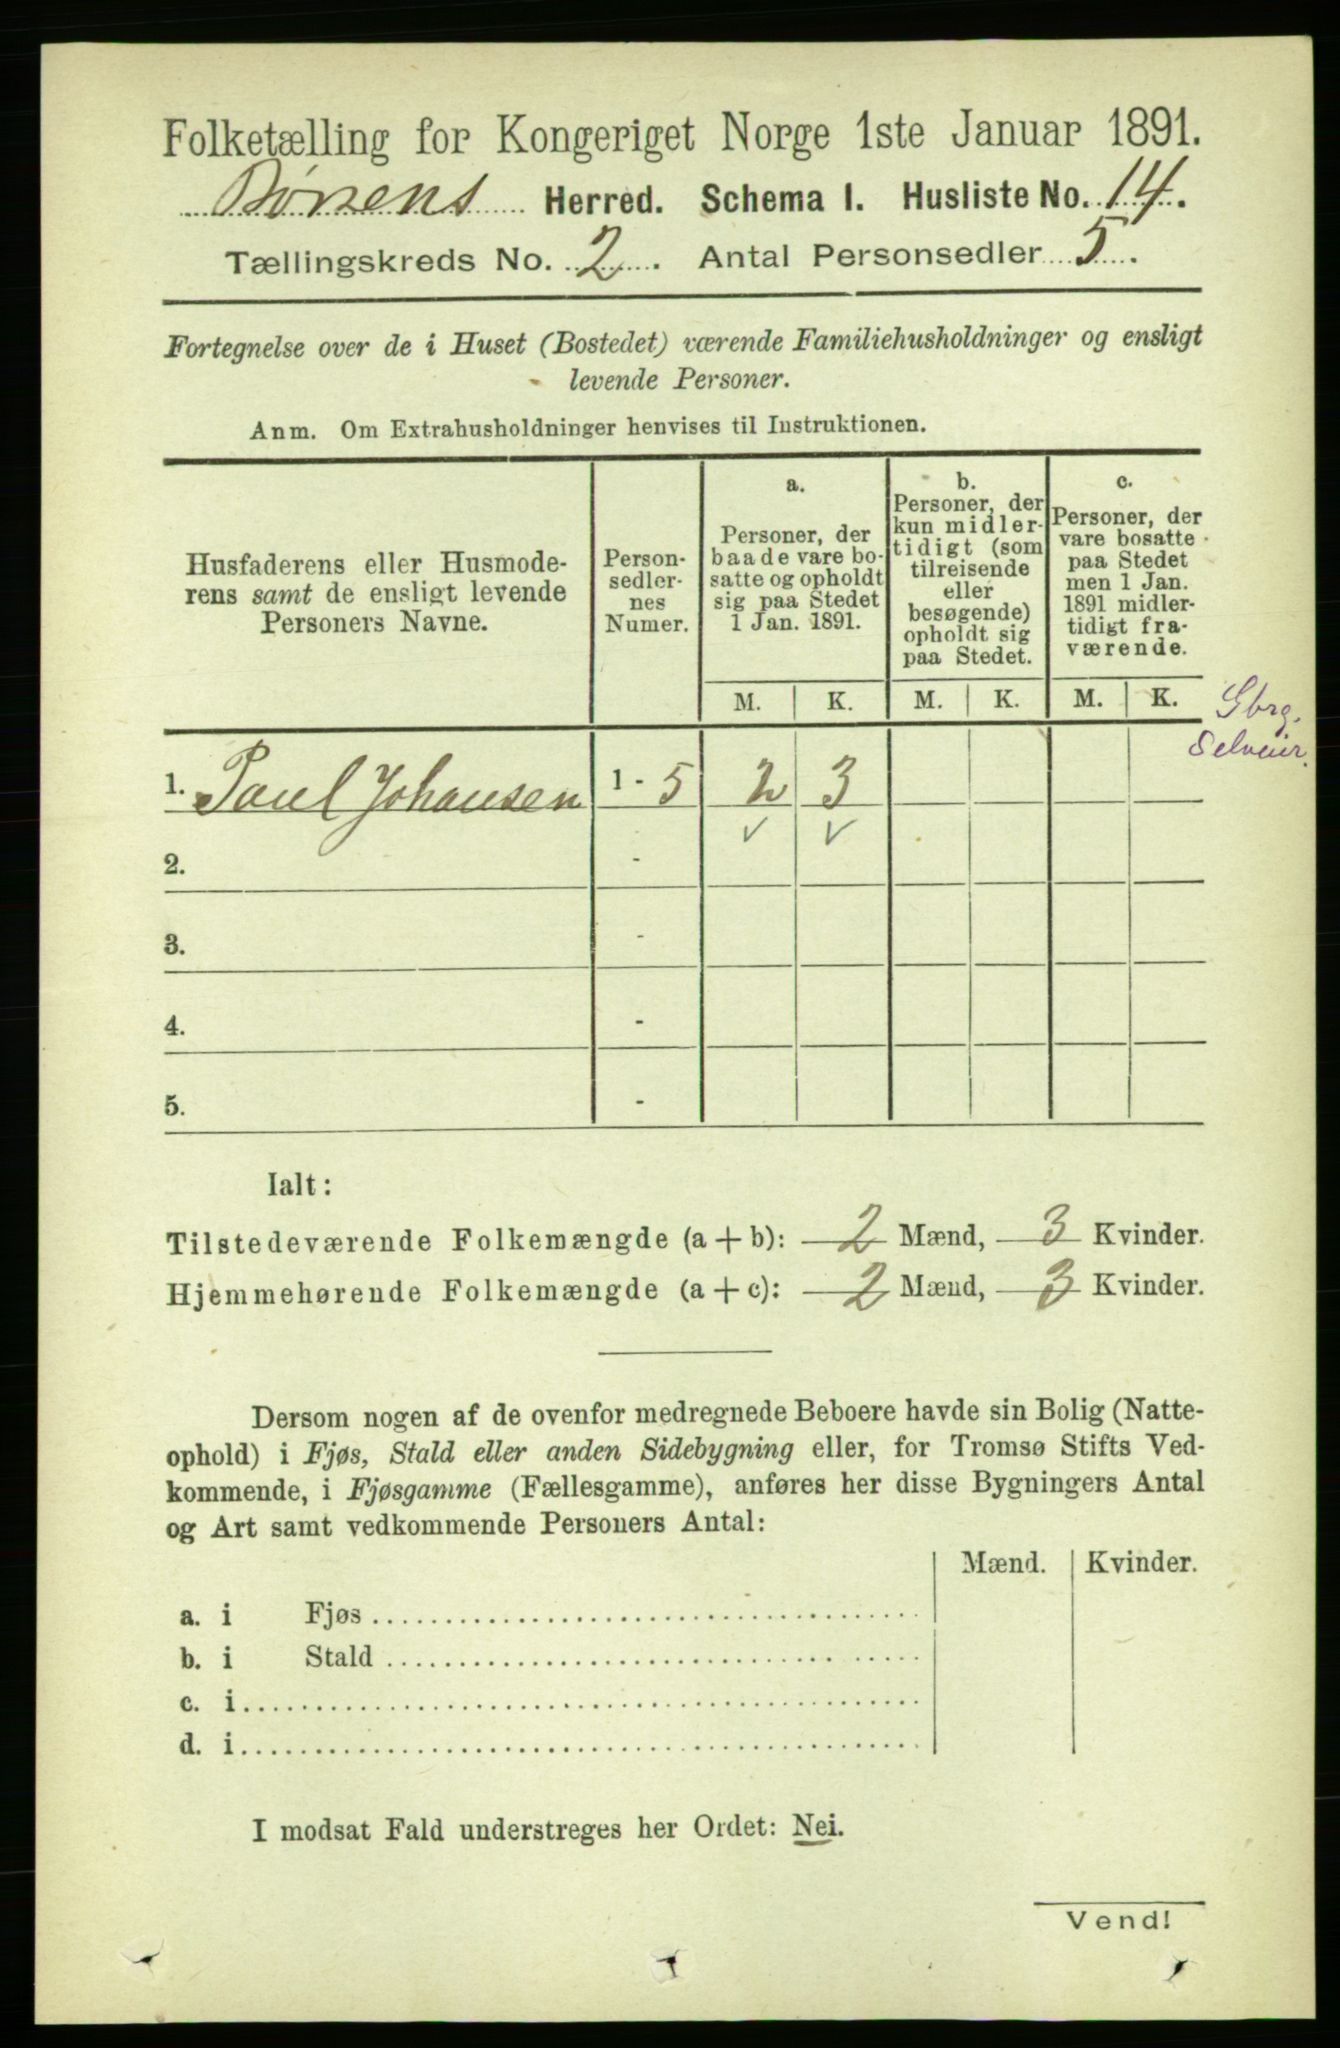 Folketælling for Kongeriget Norge 1ste Januar 1891.
Børsens Herred. Schema I. Husliste No. 14.
Tællingskreds No. 2. Antal Personsedler 5.
Fortegnelse over de i Huset (Bostedet) værende Familiehusholdninger og ensligt
levende Personer.
Anm. Om Extrahusholdninger henvises til Instruktionen.
Husfaderens eller Husmode-
rens samt de ensligt levende
Personers Navne.
Person-
sedler-
nes
Numer.
a.
Personer, der
baade vare bo-
satte og opholdt
sig paa Stedet
1 Jan. 1891.
b.
Personer, der
kun midler-
tidigt (som
tilreisende
eller
besøgende)
opholdt sig
paa Stedet.
c.
Personer, der
vare bosatte
paa Stedet
men 1 Jan.
1891 midler-
tidigt fra-
værende.
M. K. M. K. M. K.
Gbrg.
Selveier.
1. Paul Johansen 1 - 5 2 3
✓ ✓
2. -
3. -
4. -
5. -
Ialt:
Tilstedeværende Folkemængde (a + b): 2 Mænd, 3 Kvinder.
Hjemmehørende Folkemængde (a + c): 2 Mænd, 3 Kvinder.
Dersom nogen af de ovenfor medregnede Beboere havde sin Bolig (Natte-
ophold) i Fjøs, Stald eller anden Sidebygning eller, for Tromsø Stifts Ved-
kommende, i Fjøsgamme (Fællesgamme), anføres her disse Bygningers Antal
og Art samt vedkommende Personers Antal:
Mænd. Kvinder.
a. i Fjøs
b. i Stald
c. i
d. i
I modsat Fald understreges her Ordet: Nei.
Vend!